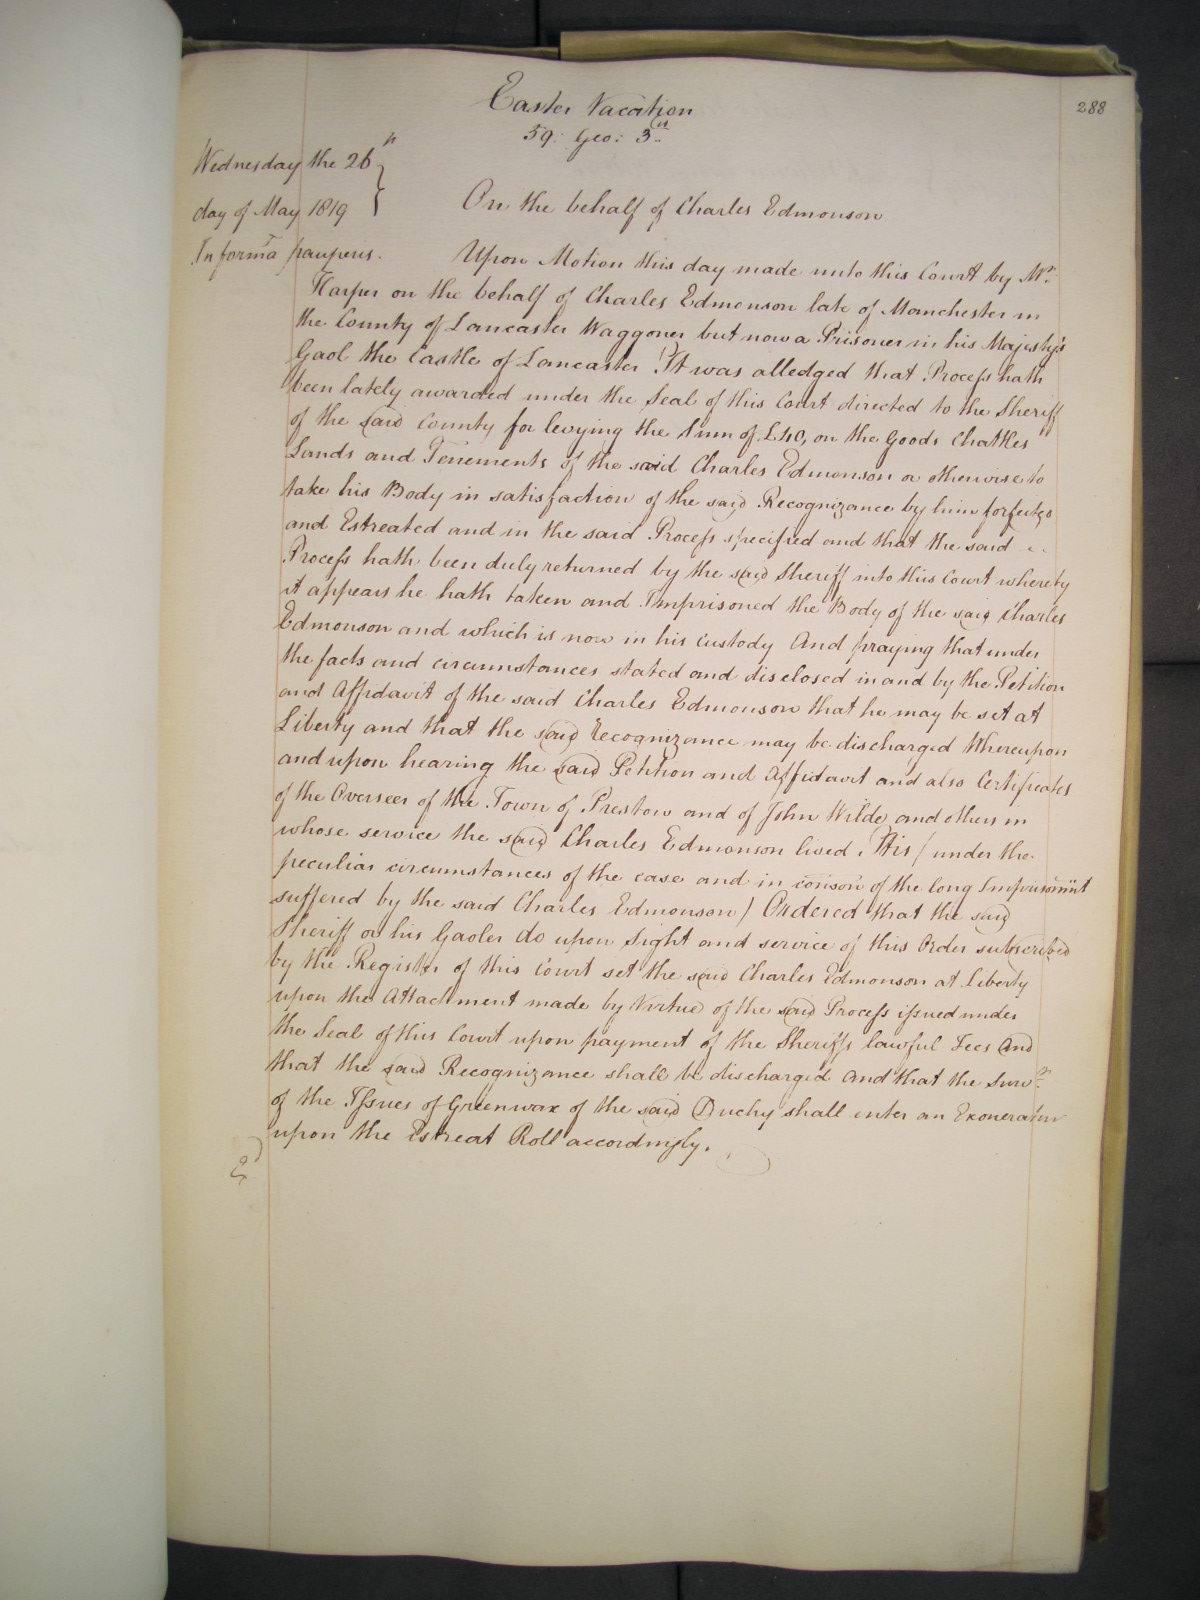 288
Easter Vacation
59: Geo: 3rd
Wednesday the 26th
day of May 1819
On the behalf of Charles Edmonson
In forma pauperis.
Upon Motion this day made unto this Court by Mr.
Harper on the behalf of Charles Edmonson late of Manchester in
the County of Lancaster Waggoner but now a Prisoner in his Majesty's
Gaol the Castle of Lancaster It was alledged that Process hath
been lately awarded under the Seal of this Court directed to the Sheriff
of the said County for levying the Sum of £40, on the Goods Chattles
Lands and Tenements of the said Charles Edmonson or otherwise to
take his Body in satisfaction of the said Recognizance by him forfeited
and Estreated and in the said Process specified and that the said
Process hath been duly returned by the said Sheriff into this Court whereby
it appears he hath taken and Imprisoned the Body of the said Charles
Edmonson and which is now in his custody And praying that under
the facts and circumstances stated and disclosed in and by the Petition
and Affidavit of the said Charles Edmonson that he may be set at
Liberty and that the said Recognizance may be discharged Whereupon
and upon hearing the said Petition and Affidavit and also Certificates
of the Overseer of the Town of Preston and of John Wilde and others in
whose service the said Charles Edmonson lived Itis / under the
peculiar circumstances of the case and in conson of the long Imprisonmt
suffered by the said Charles Edmonson / Ordered that the said
Sheriff or his Gaoler do upon Sight and service of this Order subscribed
by the Register of this Court set the said Charles Edmonson at Liberty
upon the Attachment made by Virtue of the said Process issued under
the Seal of this Court upon payment of the Sheriffs lawful Fees And
that the said Recognizance shall be discharged And that the Survr
of the Issues of Greenwax of the said Duchy shall enter an Exoneratur
upon the Estreat Roll accordingly.